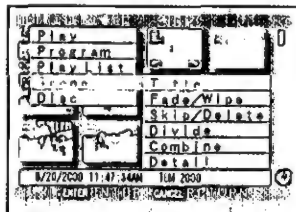 Play
Program
PlayList
Scene
Disc
Title
Fade/Wipe
Skip/Delete
Divide
Combine
Detail
8/20/2000 11:47:34AM
ENTER
CANCEL